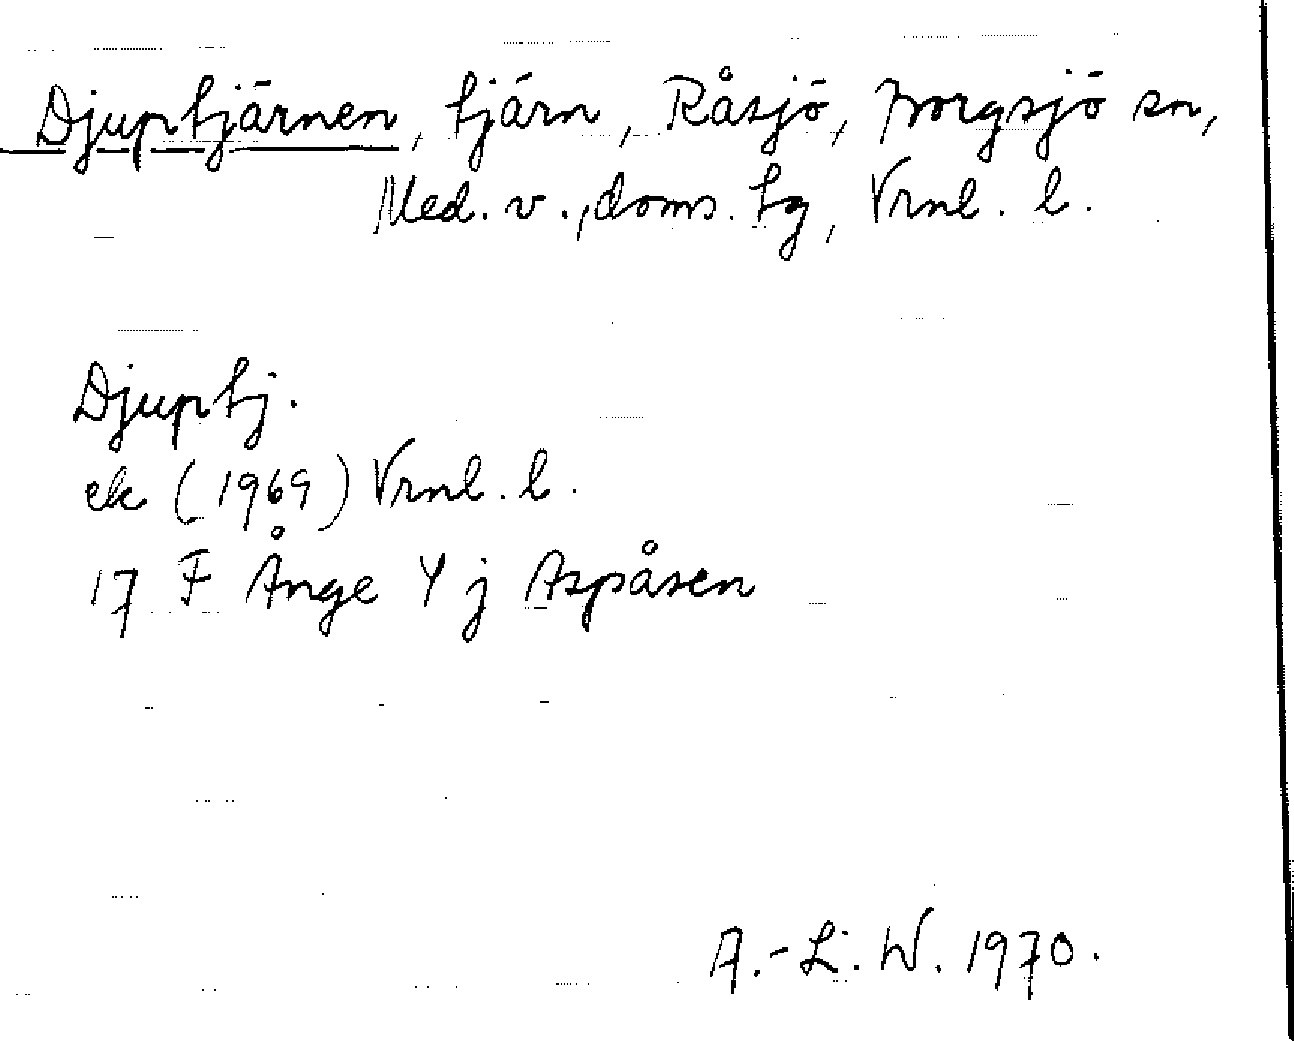 Djuptjärnen, tjärn, Råsjö, Borgsjö sn,
Med. v., doms. tg, Vrnl. l.
Djuptj.
ek (1969) Vrnl. l.
17 F Ånge Y j Aspåsen
A.-L. W. 1970.